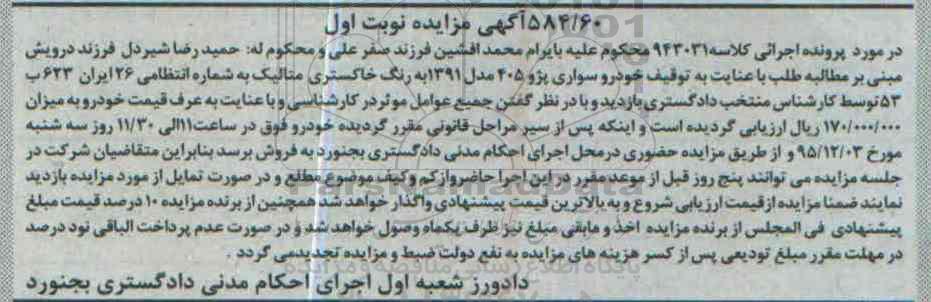 ۵۸۴/۶۰آگهی مزایده نوبت اول
در مورد پرونده اجرائی کلاسه۹۴۳۰۳۱ محکوم علیه بایرام محمد افشین فرزند صفر علی و محکوم له: حمید رضا شیردل فرزند درویش
مبنی بر مطالبه طلب با عنایت به توقیف خودرو سواری پژو ۴۰۵ مدل ۱۳۹۱به رنگ خاکستری متالیک به شماره انتظامی ۲۶ایران ۶۲۳ب
۵۳توسط کارشناس منتخب دادگستری بازدید و با در نظر گفتن جمیع عوامل موثر در کارشناسی و با عنایت به عرف قیمت خودرو به میزان
۱۷۰/۰۰۰/۰۰۰ ریال ارزیابی گردیده است و اینکه پس از سیر مراحل قانونی مقرر گردیده خودرو فوق در ساعت۱۱الی ۱۱/۳۰ روز سه شنبه
مورخ ۹۵/۱۲/۰۳ و از طریق مزایده حضوری درمحل اجرای احکام مدنی دادگستری بجنورد به فروش برسد بنابراین متقاضیان شرکت در
جلسه مزایده می توانند پنج روز قبل از موعد مقرر در این اجرا حاضر واز کم و کیف موضوع مطلع و در صورت تمایل از مورد مزایده بازدید
نمایند ضمنا مزایده از قیمت ارزیابی شروع و به بالاترین قیمت پیشنهادی واگذار خواهد شد همچنین از برنده مزایده ۱۰ درصد قیمت مبلغ
پیشنهادی فی المجلس از برنده مزایده اخذ و مابقی مبلغ نیز ظرف یکماه وصول خواهد شد و در صورت عدم پرداخت الباقی نود درصد
در مهلت مقرر مبلغ تودیعی پس از کسر هزینه های مزایده به نفع دولت ضبط و مزایده تجدیدمی گردد .
دادورز شعبه اول اجرای احکام مدنی دادگستری بجنورد